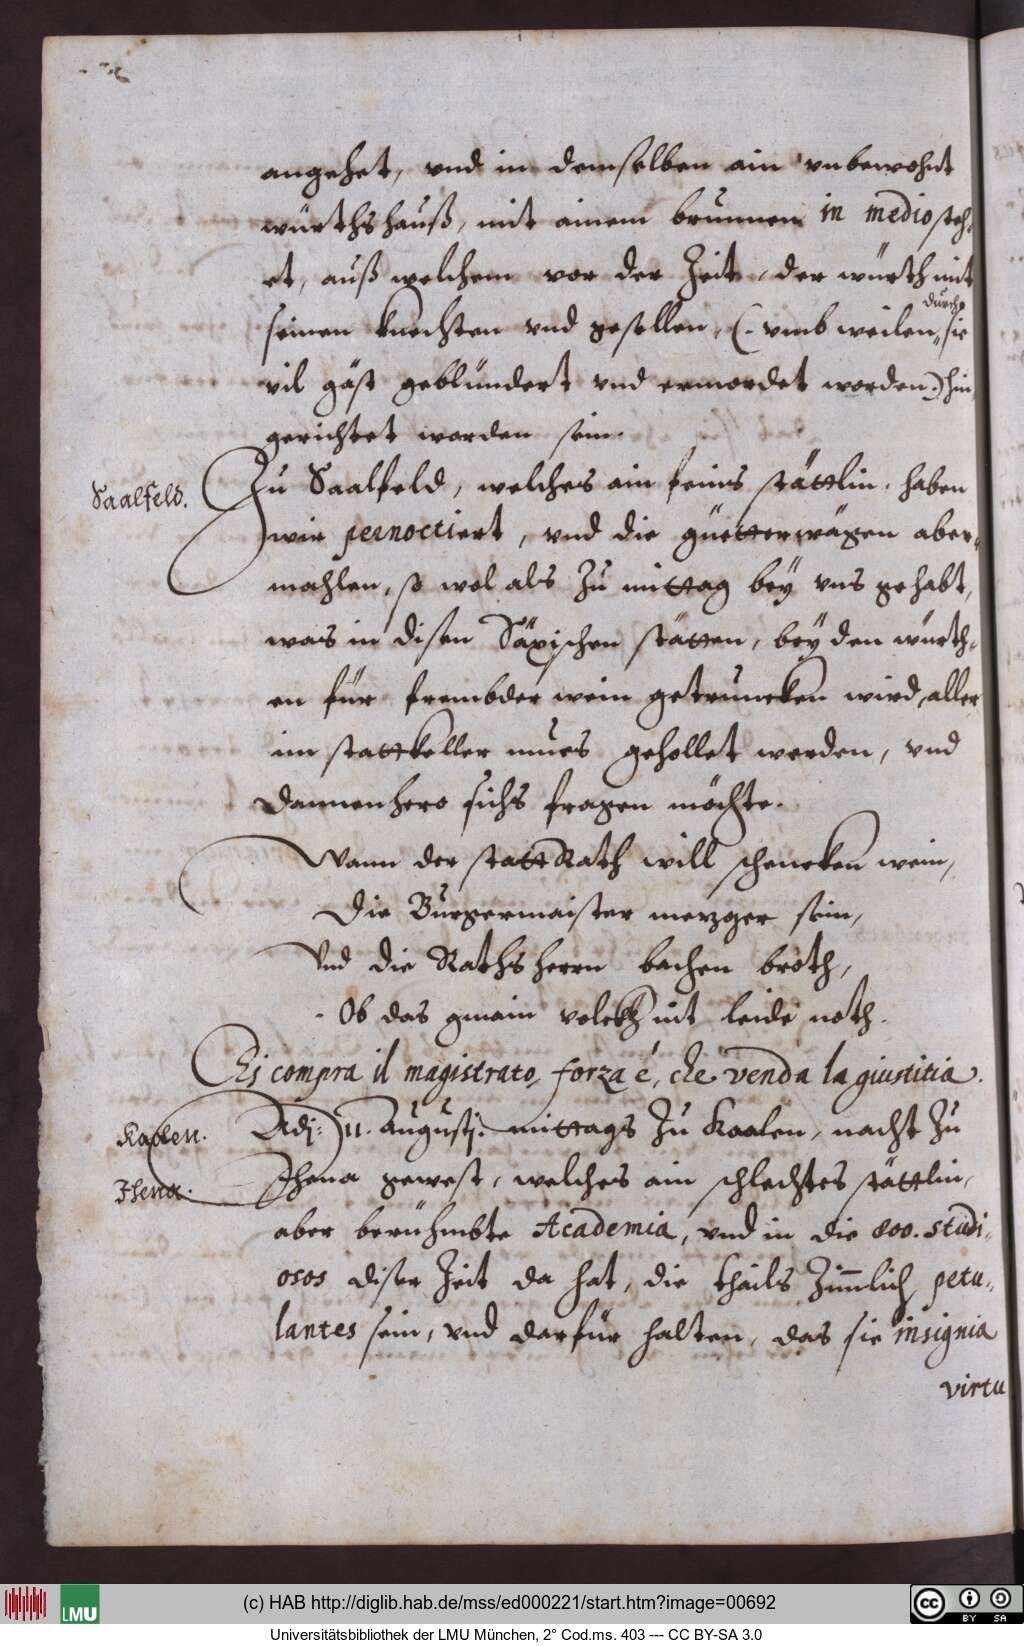 angehet, vnd in demselben ain vnbewohnt
würthshauß, mit ainem brunnen in medio steh-
et, auß welchem vor der Zeit, der würth mit
durch
seinen knechten vnd gesellen, (. vmb weilen, sie
vil gäst geblündert vnd ermordet worden.) hin,
gerichtet worden sein.
Saalfeld.
Zu Saalfeld, welches ain feins stättlin, haben
wir pernoctiert, vnd die güetterwägen aber-
mahlen, so wol als Zu mittag bey vns gehabt,
was in disen Säxischen stätten, bey den würth-
en für frembder wein getruncken wird, aller
im stattkeller mues gehollet werden, vnd
dannenhero sichs fragen möchte.
Wann der statt Rath will schencken wein,
Die Burgermaister mezger sein,
Vnd die Rathsherrn bachen broth,
Ob das gmain volckh nit leide noth.
Ei compra il magistrato, forza é, che venda la giustitia.
Kaalen.
Adj: 11. Augustj. mittags Zu Kaalen, nacht Zu
Jhena.
Jhena gewest, welches ain schlechtes stättlin,
aber berühmbte Academia, vnd in die 800. studi-
osos diser Zeit da hat, die thails Zimlich petu-
lantes sein, vnd darfür halten, das sie insignia
virtu
(c) HAB http://diglib.hab.de/mss/ed000221/start.htm?image=00692
LMU
CC BY SA
Universitätsbibliothek der LMU München, 2° Cod.ms. 403 --- CC BY-SA 3.0